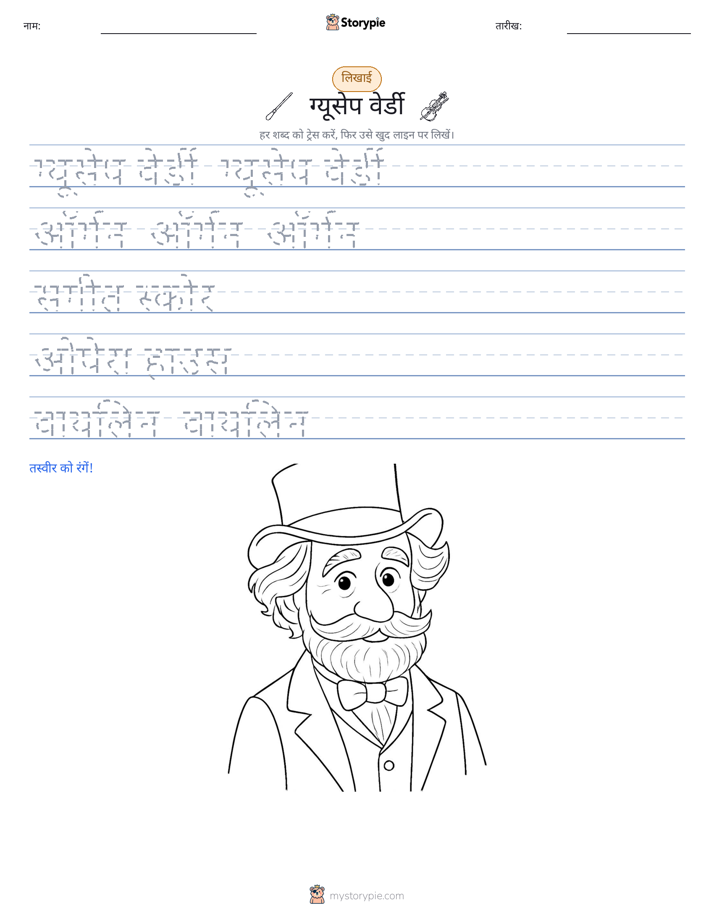 नाम:
Storypie
तारीख:
लिखाई
ग्यूसेप वेर्डी
हर शब्द को ट्रेस करें, फिर उसे खुद लाइन पर लिखें।
ग्यूसेप वेर्डी ग्यूसेप वेर्डी
ऑर्गन ऑर्गन ऑर्गन
संगीत स्कोर
ओपेरा हाउस
वायलिन वायलिन
तस्वीर को रंगें!
mystorypie.com